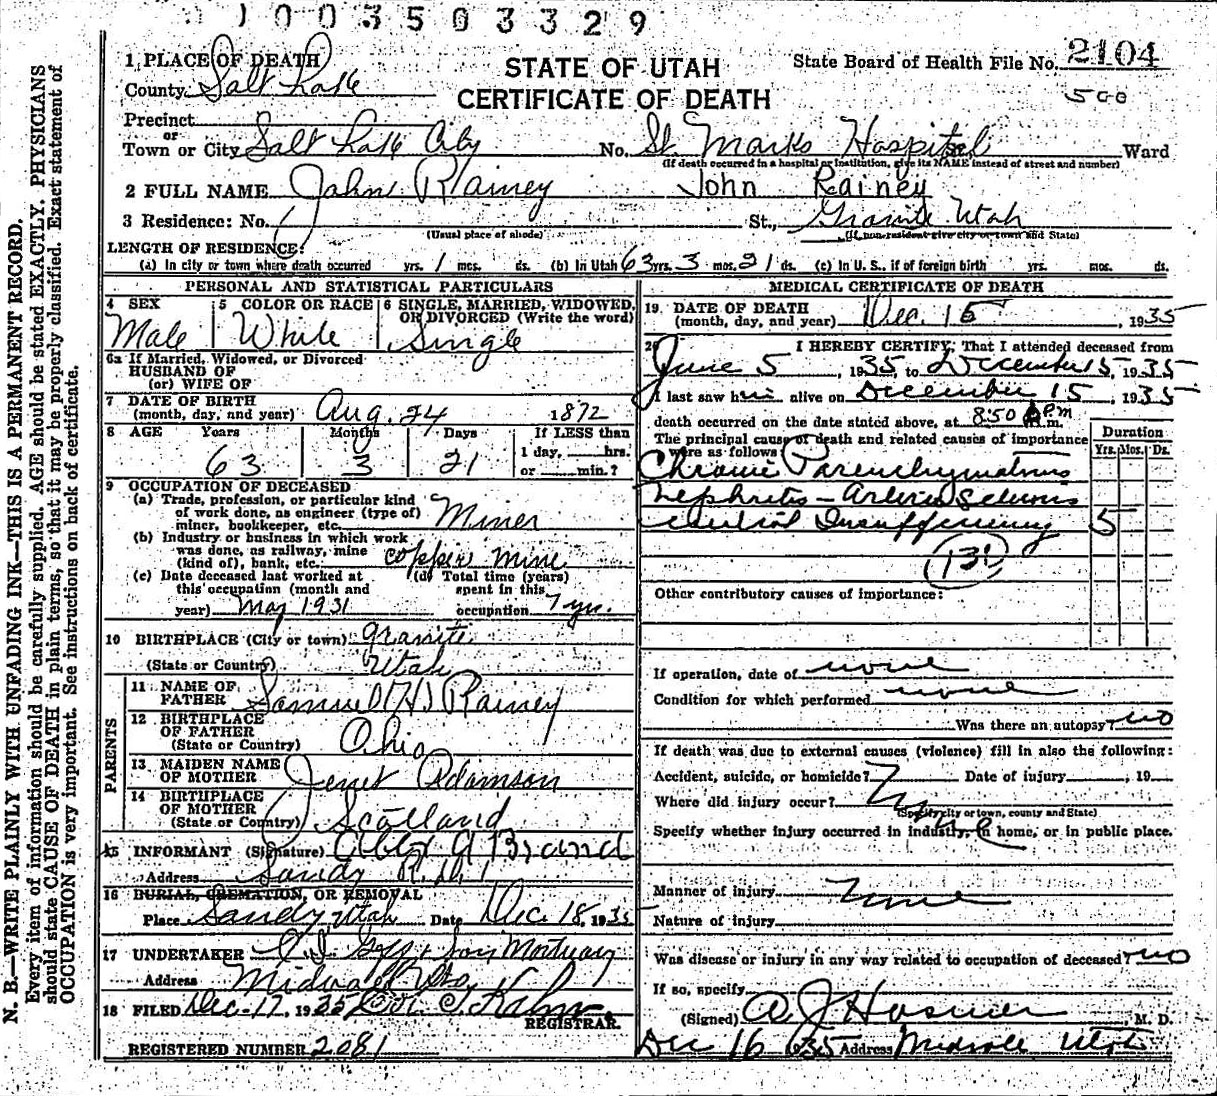 1003503329
N. B.—WRITE PLAINLY WITH UNFADING INK—THIS IS A PERMANENT RECORD.
Every item of information should be carefully supplied. AGE should be stated EXACTLY. PHYSICIANS
should state CAUSE OF DEATH in plain terms, so that it may be properly classified. Exact statement of
OCCUPATION is very important. See instructions on back of certificate.
1 PLACE OF DEATH
STATE OF UTAH
State Board of Health File No. 2104
County Salt Lake
CERTIFICATE OF DEATH
500
Precinct
or
Town or City Salt Lake City No. St. Marks Hospital Ward
(If death occurred in a hospital or institution, give its NAME instead of street and number)
2 FULL NAME John Rainey John Rainey
3 Residence: No. St., Granite Utah
(Usual place of abode) (If non-resident give city or town and State)
LENGTH OF RESIDENCE:
(a) In city or town where death occurred yrs. 1 mos. ds. (b) In Utah 63 yrs. 3 mos. 21 ds. (c) In U. S., if of foreign birth yrs. mos. ds.
PERSONAL AND STATISTICAL PARTICULARS
4 SEX 5 COLOR OR RACE 6 SINGLE, MARRIED, WIDOWED,
OR DIVORCED (Write the word)
Male White Single
6a If Married, Widowed, or Divorced
HUSBAND OF
(or) WIFE OF
7 DATE OF BIRTH
(month, day, and year) Aug. 24 1872
8 AGE Years Months Days If LESS than
1 day, hrs.
63 3 21 or min.?
9 OCCUPATION OF DECEASED
(a) Trade, profession, or particular kind
of work done, as engineer (type of)
miner, bookkeeper, etc. Miner
(b) Industry or business in which work
was done, as railway, mine
(kind of), bank, etc. copper mine
(c) Date deceased last worked at (d) Total time (years)
this occupation (month and spent in this
year) May 1931 occupation 7 yr.
10 BIRTHPLACE (City or town) Granite
(State or Country) Utah
PARENTS
11 NAME OF
FATHER Samuel H. Rainey
12 BIRTHPLACE
OF FATHER
(State or Country) Ohio
13 MAIDEN NAME
OF MOTHER Jenet Adamson
14 BIRTHPLACE
OF MOTHER
(State or Country) Scotland
15 INFORMANT (Signature) A Brand
Address Sandy R.D. 1
16 BURIAL, CREMATION, OR REMOVAL
Place Sandy Utah Date Dec. 18, 1935
17 UNDERTAKER Goff & Son Mortuary
Address Midvale Utah
18 FILED Dec. 17, 1935
REGISTRAR.
REGISTERED NUMBER 2081
MEDICAL CERTIFICATE OF DEATH
19 DATE OF DEATH
(month, day, and year) Dec. 15, 1935
20 I HEREBY CERTIFY, That I attended deceased from
June 5, 1935 to December 15, 1935
I last saw him alive on December 15, 1935
death occurred on the date stated above, at 8:50 P.m.
The principal cause of death and related causes of importance
were as follows:
Duration
Yrs. Mos. Ds.
Chronic Parenchymatous
Nephritis - Arterio Sclerosis
Mitral Insufficiency 5
131
Other contributory causes of importance:
If operation, date of none
Condition for which performed none
Was there an autopsy? no
If death was due to external causes (violence) fill in also the following:
Accident, suicide, or homicide? Date of injury , 19
Where did injury occur?
(Specify city or town, county and State)
None
Specify whether injury occurred in industry, in home, or in public place.
Manner of injury None
Nature of injury
Was disease or injury in any way related to occupation of deceased? no
If so, specify
(Signed) A. J. Hosmer, M. D.
Dec 16 1935 Address Midvale Utah